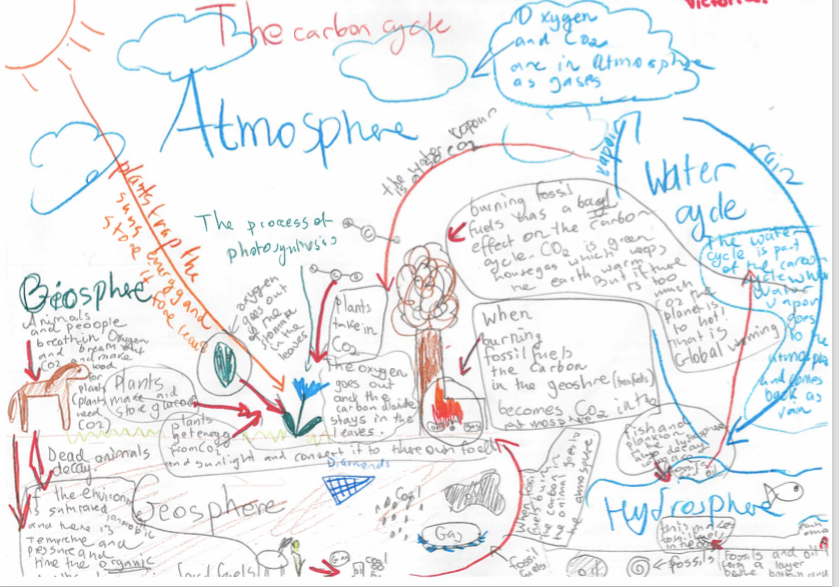 Victoria.
The carbon cycle
Oxygen
and CO2
are in Atmosphere
as gases
Atmosphere
the water vapour
is also CO2
vapor
rain
Water
cycle
plants trap the
suns energy and
store it
The process of
photosynthesis
burning fossil
fuels has a bad
effect on the carbon
cycle. CO2 is green
house gas which keeps
the earth warm
But if there
is too
much
CO2 the
planet is
to hot!
that is
Global warming
The water
cycle is part
of the carbon
cycle when
water
vapour
goes
to the
atmosphere
and comes
back as
rain
Biosphere
Animals
and peoople
breath in Oxygen
and breath out
CO2 and make
food
for
plants
(plants
need
CO2)
oxygen
goes out
of the
stomata
in the
leaves
Plants
take in
CO2
Plants
make and
store glucose
The oxygen
goes out
and the
carbon dioxide
stays in the
leaves.
When
burning
fossil fuels
the carbon
in the geosphre
becomes CO2 in the
atmosphere
plants
get energy
from CO2
and sunlight and convert it to there own food
Dead animals
decay.
Diamonds
Geosphere
the environ
is saturated
and there is
anarobic
temprture and
pressure and
time the organic
Coal
Gas
fossil
fuels
When fossil
fuels burn
the carbon in
the animal goes in
the atmosphere
fish and
plankton
decay
Hydrosphere
this makes
fossil fuels
fossil fuels
Gas
coal
oil
fossils
Fossils and oil
form a layer